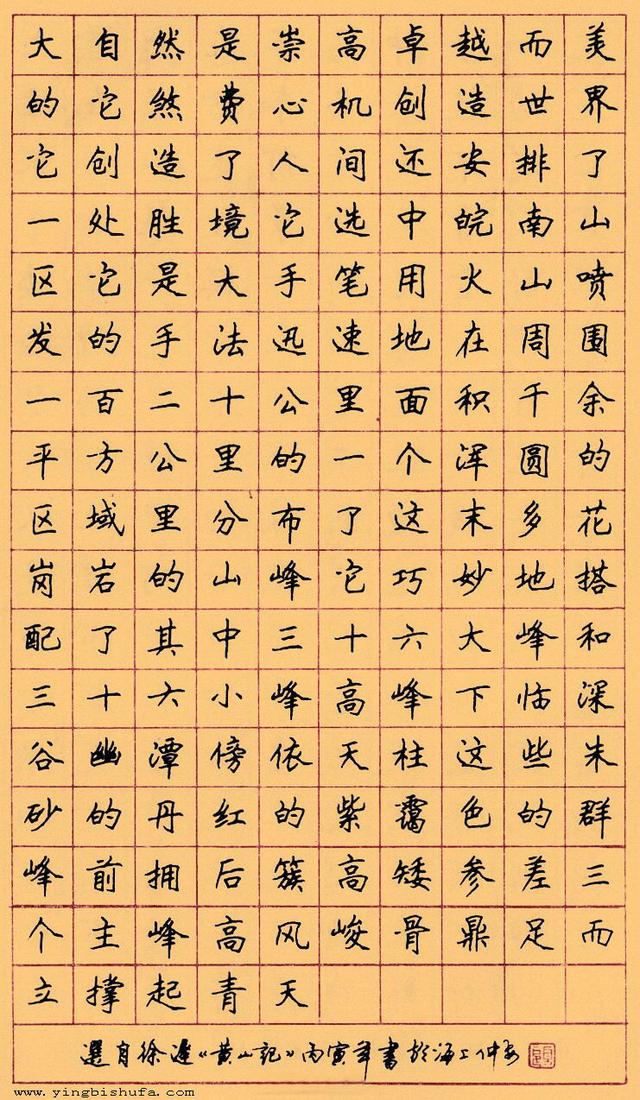 大自然是崇高卓越而美
的它煞费心机创造世界
它创造了人间还安排了
一处胜境它选中皖南山
区它是大手笔用火山喷
发的手法迅速地在周围
一百二十公里面积千余
平方公里的一个浑圆的
区域里分布了这末多花
岗岩的山峰它巧妙地搭
配了其中三十六大峰和
三十六小峰高峰下临深
谷幽潭傍依天柱这些朱
砂的丹红的紫霭色的群
峰前拥后簇高矮参差三
个主峰高风峻骨鼎足而
立撑起青天
選自徐迟《黄山記》丙寅年書於海上仲安
www.yingbishufa.com